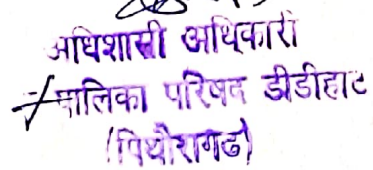 अधिशासी अधिकारी
पालिका परिषद डीडीहाट
(पिथौरागढ)